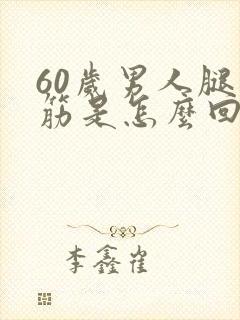 60歲男人腿
筋是怎麼回
李鑫雀